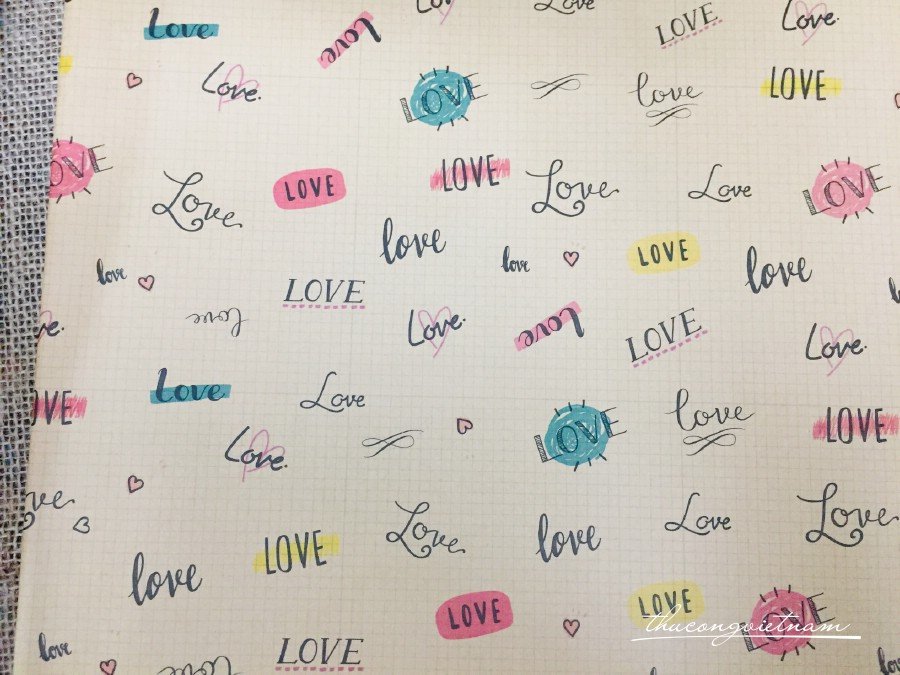 Love
Love
Love
LOVE
Love.
Love.
LOVE
love
LOVE
OVE
Love
LOVE
LOVE
Love
Love
LOVE
love
love
love
LOVE
love
love
LOVE
ve.
Love.
Love
LOVE
Love.
OVE
Love
Love
LOVE
love
LOVE
Love.
ove
Love
love
Love
Love
love
LOVE
LOVE
LOVE
LOVE
thucongvietnam
love
LOVE